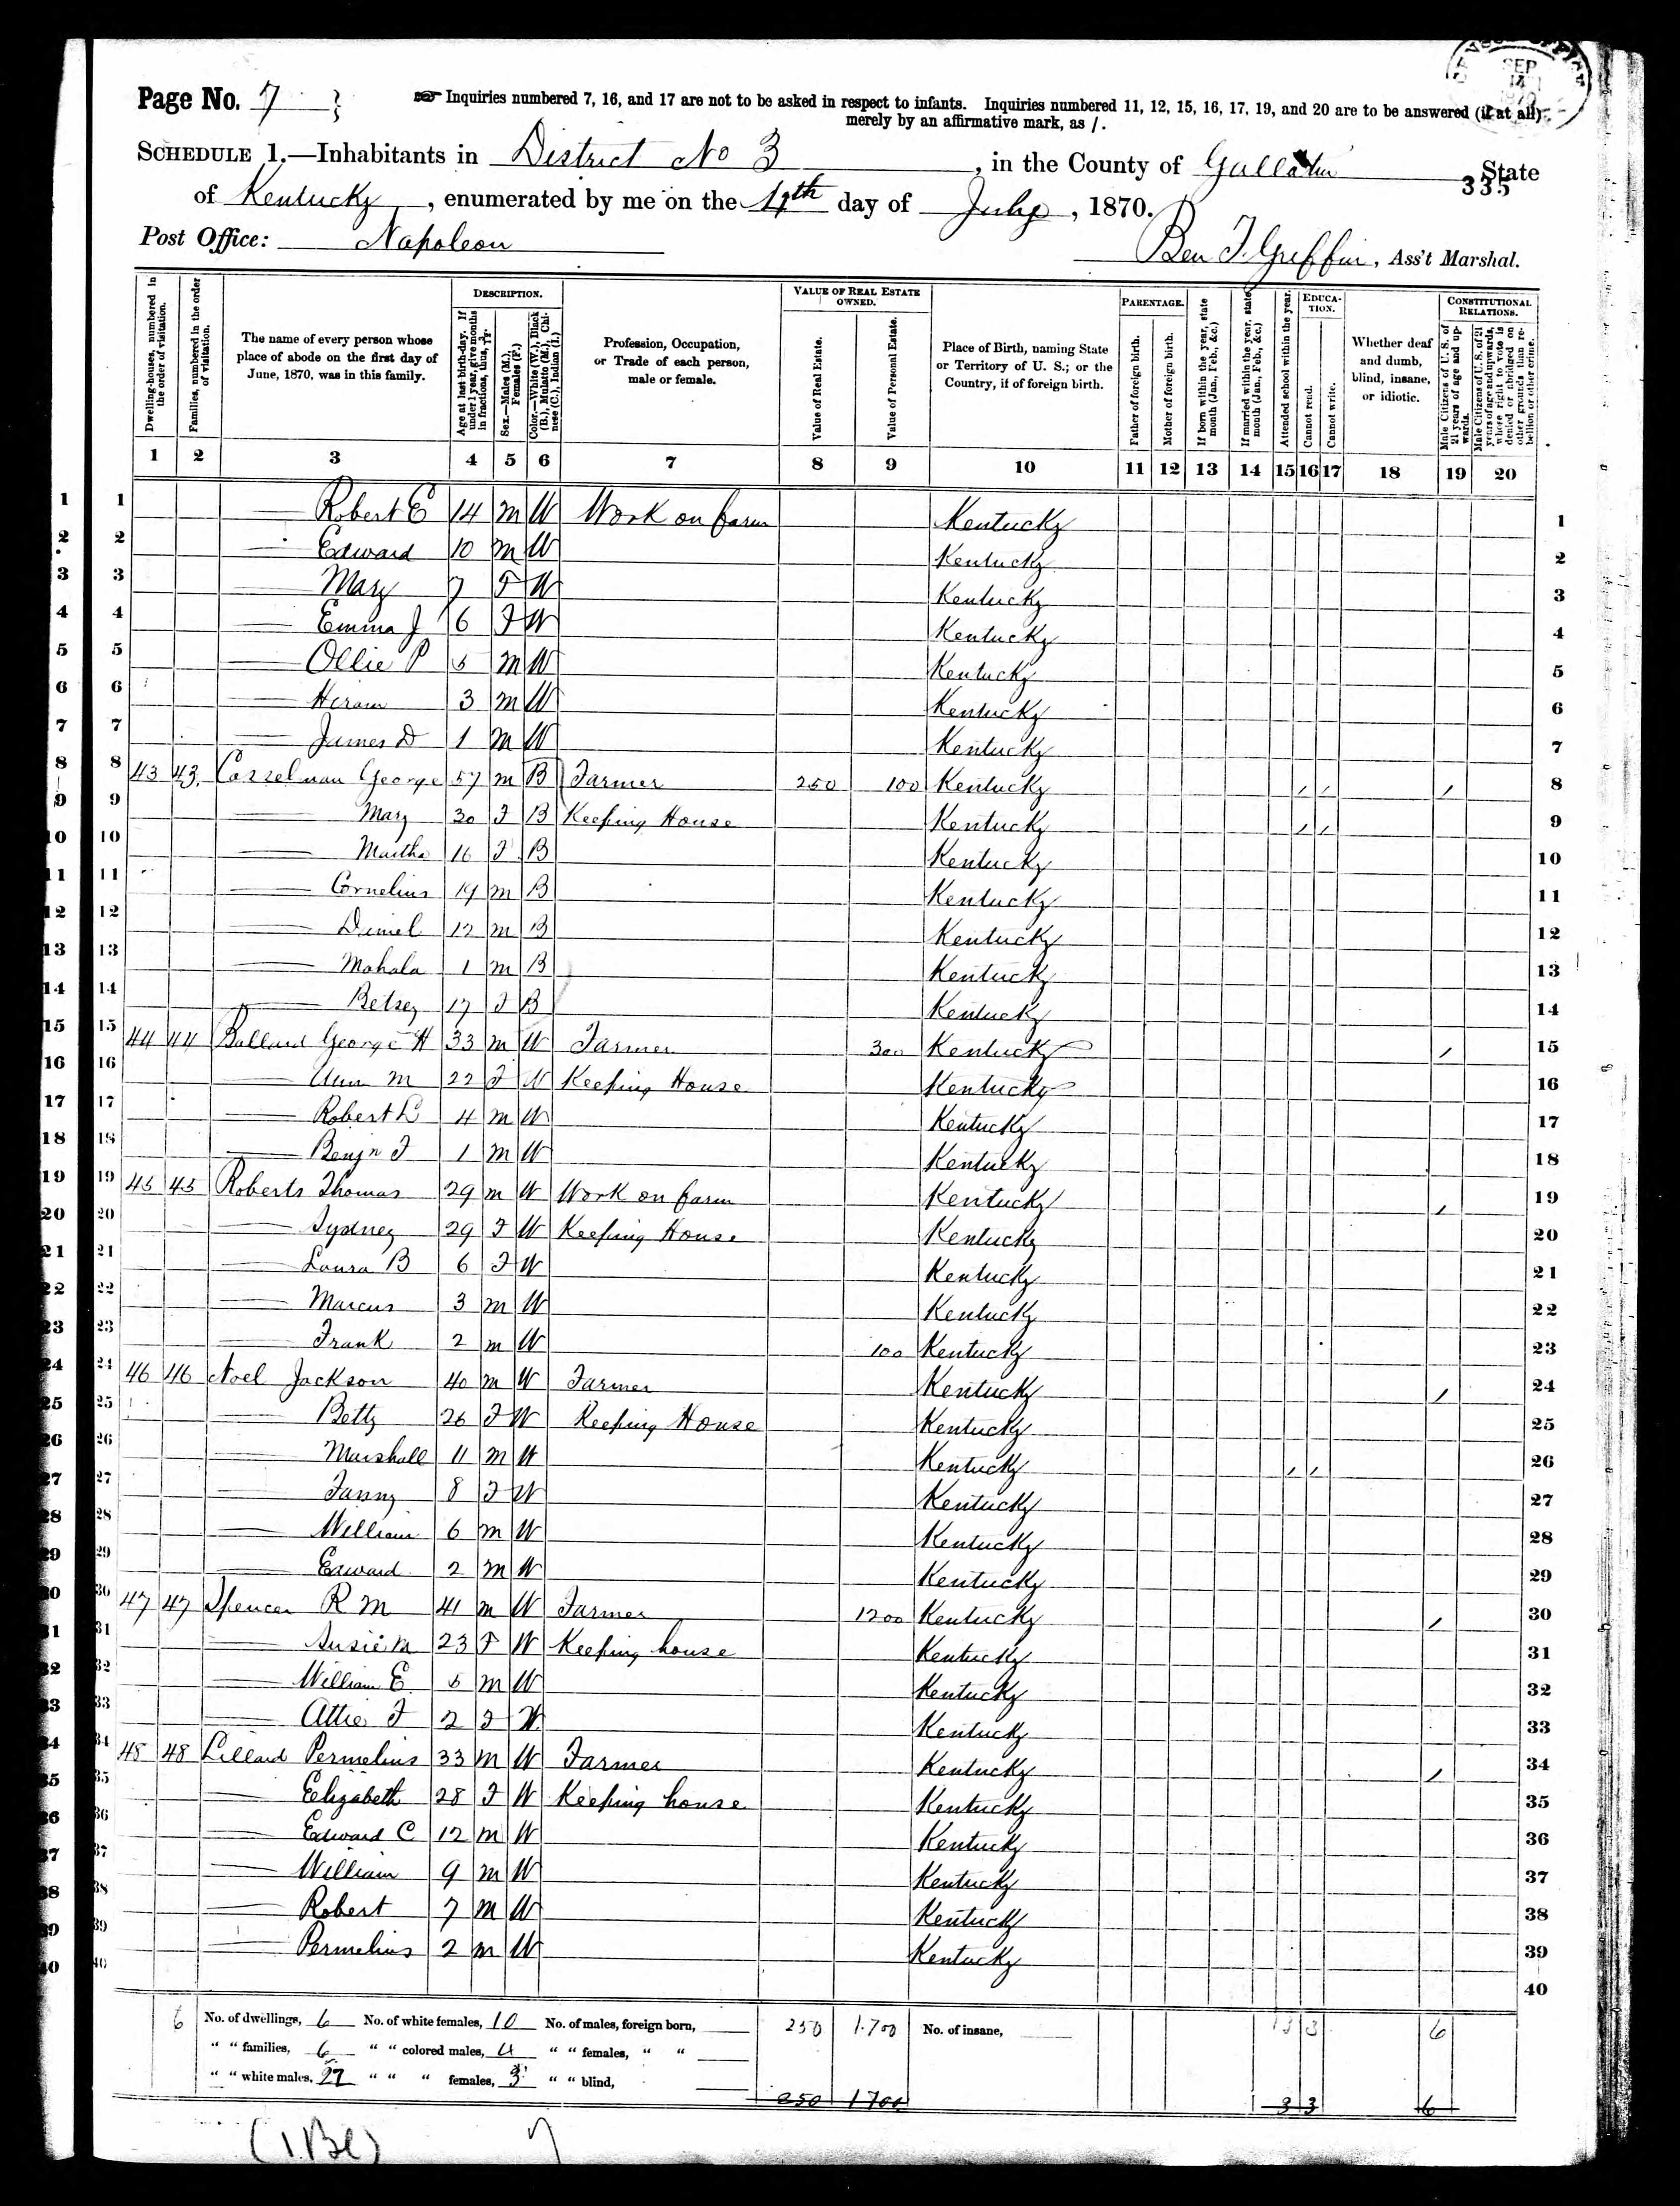 Page No. 7
Inquiries numbered 7, 16, and 17 are not to be asked in respect to infants. Inquiries numbered 11, 12, 15, 16, 17, 19, and 20 are to be answered (if at all)
merely by an affirmative mark, as /.
SCHEDULE 1.—Inhabitants in District No 3, in the County of Gallatin State
335
of Kentucky, enumerated by me on the day of July, 1870.
Post Office: Napoleon
Ben F. Griffin, Ass't Marshal.
Dwelling-houses, numbered in the order of visitation.
Families, numbered in the order of visitation.
The name of every person whose place of abode on the first day of June, 1870, was in this family.
DESCRIPTION.
Age at last birth-day. If under 1 year, give months in fractions, thus,
Sex.—Males (M.), Females (F.)
Color.—White (W.), Black (B.), Mulatto (M.), Chinese (C.), Indian (I.)
Profession, Occupation, or Trade of each person, male or female.
VALUE OF REAL ESTATE OWNED.
Value of Real Estate.
Value of Personal Estate.
Place of Birth, naming State or Territory of U. S.; or the Country, if of foreign birth.
PARENTAGE.
Father of foreign birth.
Mother of foreign birth.
If born within the year, state month (Jan., Feb., &c.)
If married within the year, state month (Jan., Feb., &c.)
Attended school within the year.
EDUCATION.
Cannot read.
Cannot write.
Whether deaf and dumb, blind, insane, or idiotic.
CONSTITUTIONAL RELATIONS.
Male Citizens of U. S. of 21 years of age and upwards.
Male Citizens of U. S. of 21 years of age and upwards, whose right to vote is denied or abridged on other grounds than rebellion or other crime.
1 2 3 4 5 6 7 8 9 10 11 12 13 14 15 16 17 18 19 20
1 1 — Robert E 14 M W Work on farm Kentucky 1
2 2 — Edward 10 M W Kentucky 2
3 3 — Mary 7 F W Kentucky 3
4 4 — Emma J 6 F W Kentucky 4
5 5 — Ollie P 5 M W Kentucky 5
6 6 — Hiram 3 M W Kentucky 6
7 7 — James D 1 M W Kentucky 7
8 8 43 43 Casselman George 57 M B Farmer 250 100 Kentucky / / / 8
9 9 — Mary 30 F B Keeping House Kentucky / / 9
10 10 — Martha 16 F B Kentucky 10
11 11 — Cornelius M B Kentucky 11
12 12 — Daniel 12 M B Kentucky 12
13 13 — Mahala 1 M B Kentucky 13
14 14 — Betsey 17 F B Kentucky 14
15 15 44 44 Ballard George H 33 M W Farmer 300 Kentucky / 15
16 16 — Ann M 22 F W Keeping House Kentucky 16
17 17 — Robert L 4 M W Kentucky 17
18 18 — Benjn F 1 M W Kentucky 18
19 19 45 45 Roberts Thomas 29 M W Work on farm Kentucky / 19
20 20 — Sydney 29 F W Keeping House Kentucky 20
21 21 — Laura B 6 F W Kentucky 21
22 22 — Marcus 3 M W Kentucky 22
23 23 — Frank 2 M W 100 Kentucky 23
24 24 46 46 Noel Jackson 40 M W Farmer Kentucky / 24
25 25 — Betty 26 F W Keeping House Kentucky 25
26 26 — Marshall 11 M W Kentucky / / 26
27 27 — Fanny 8 F W Kentucky 27
28 28 — William 6 M W Kentucky 28
29 29 — Edward 2 M W Kentucky 29
30 30 47 47 Spencer R M 41 M W Farmer 1200 Kentucky / 30
31 31 — Susie M 23 F W Keeping house Kentucky 31
32 32 — William E 5 M W Kentucky 32
33 33 — Attie F 2 F W Kentucky 33
34 34 48 48 Lillard Permelius 33 M W Farmer Kentucky / 34
35 35 — Elizabeth 28 F W Keeping house Kentucky 35
36 36 — Edward C 12 M W Kentucky 36
37 37 — William 9 M W Kentucky 37
38 38 — Robert 7 M W Kentucky 38
39 39 — Permelius 2 M W Kentucky 39
40 40 40
6 No. of dwellings, 6 No. of white females, 10 No. of males, foreign born, 250 1.700 No. of insane, 3 6
" " families, 6 " " colored males, 4 " " females, " "
" " white males, " " " females, 3 " " blind,
250 1700 3 3 6